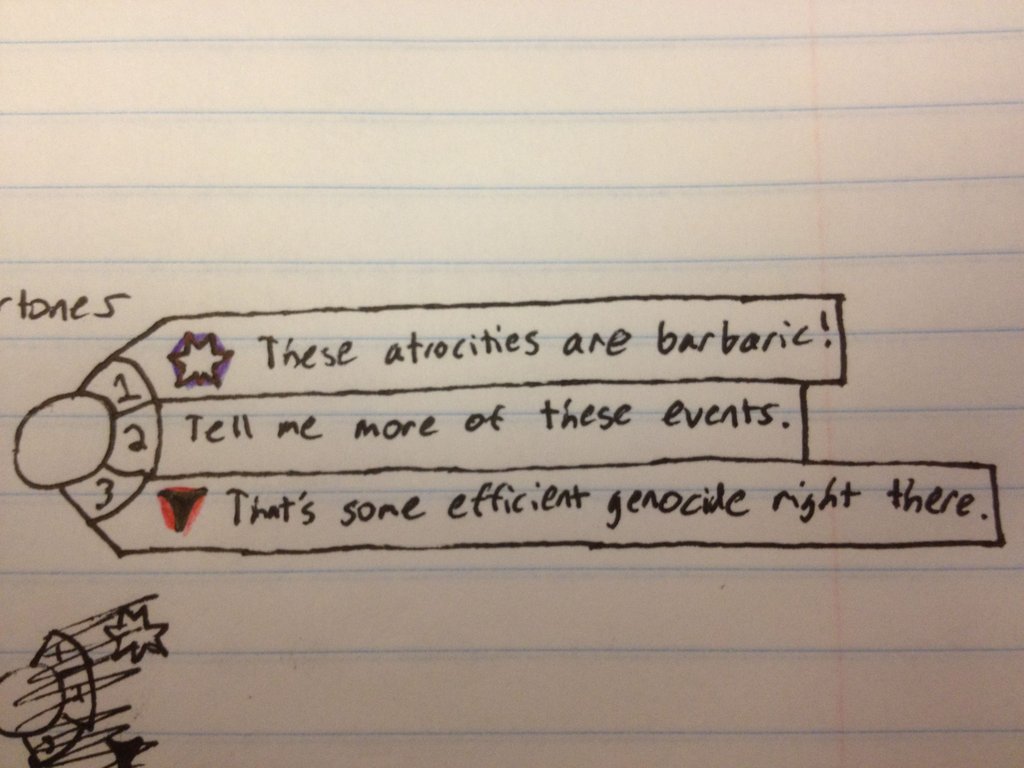 rtones
1 These atrocities are barbaric!
2 Tell me more of these events.
3 That's some efficient genocide right there.